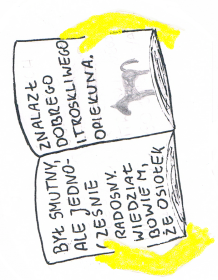 BYŁ SMUTNY,
ALE JEDNO-
CZEŚNIE
RADOSNY.
WIEDZIAŁ
BOWIEM,
ŻE OSIOŁEK
ZNALAZŁ
DOBREGO
I TROSKLIWEGO
OPIEKUNA.